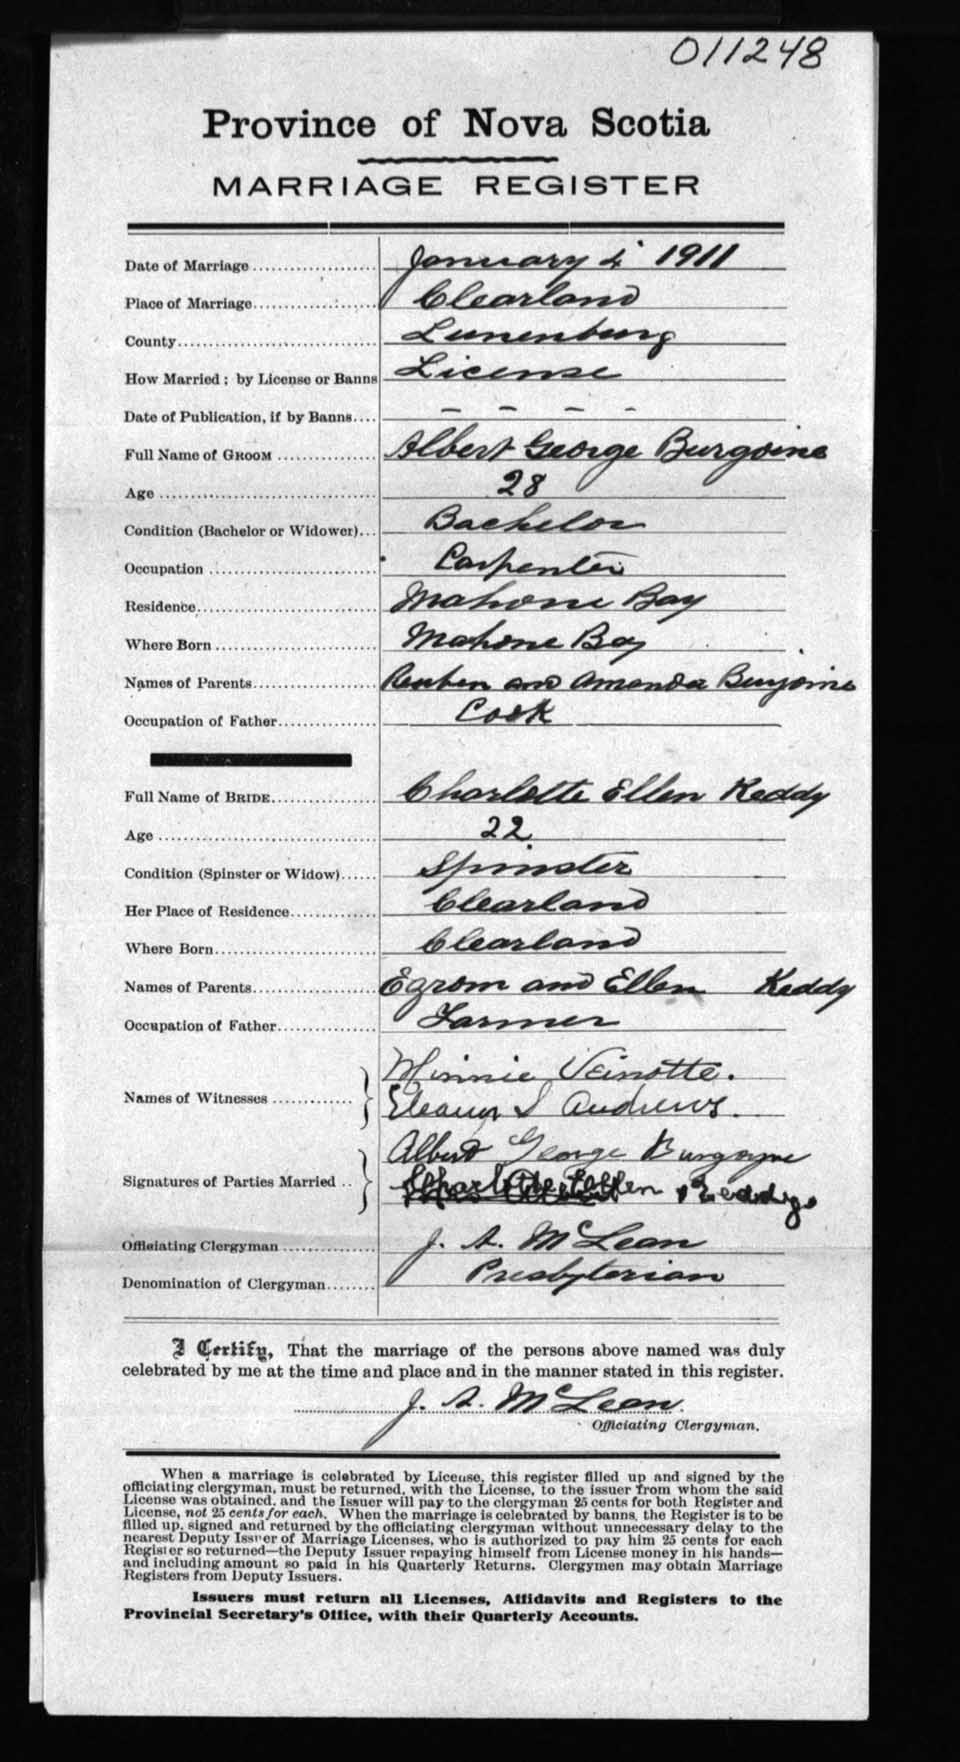 011248
Province of Nova Scotia
MARRIAGE REGISTER
Date of Marriage January 4 1911
Place of Marriage Clearland
County Lunenburg
How Married; by License or Banns License
Date of Publication, if by Banns - - - -
Full Name of GROOM Albert George Burgoine
Age 28
Condition (Bachelor or Widower) Bachelor
Occupation Carpenter
Residence Mahone Bay
Where Born Mahone Bay
Names of Parents Reuben and Amanda Burgoine
Occupation of Father Cook
Full Name of BRIDE Charlotte Ellen Keddy
Age 22
Condition (Spinster or Widow) Spinster
Her Place of Residence Clearland
Where Born Clearland
Names of Parents Ezrom and Ellen Keddy
Occupation of Father Farmer
Names of Witnesses Minnie Veinotte.
Eleanor S Andrews
Signatures of Parties Married Albert George Burgoyne
Charlotte Ellen Keddy
Officiating Clergyman J. A. McLean
Denomination of Clergyman Presbyterian
I Certify, That the marriage of the persons above named was duly
celebrated by me at the time and place and in the manner stated in this register.
J. A. McLean.
Officiating Clergyman.
When a marriage is celebrated by License, this register filled up and signed by the
officiating clergyman, must be returned, with the License, to the issuer from whom the said
License was obtained, and the Issuer will pay to the clergyman 25 cents for both Register and
License, not 25 cents for each. When the marriage is celebrated by banns, the Register is to be
filled up, signed and returned by the officiating clergyman without unnecessary delay to the
nearest Deputy Issuer of Marriage Licenses, who is authorized to pay him 25 cents for each
Register so returned—the Deputy Issuer repaying himself from License money in his hands—
and including amount so paid in his Quarterly Returns. Clergymen may obtain Marriage
Registers from Deputy Issuers.
Issuers must return all Licenses, Affidavits and Registers to the
Provincial Secretary's Office, with their Quarterly Accounts.